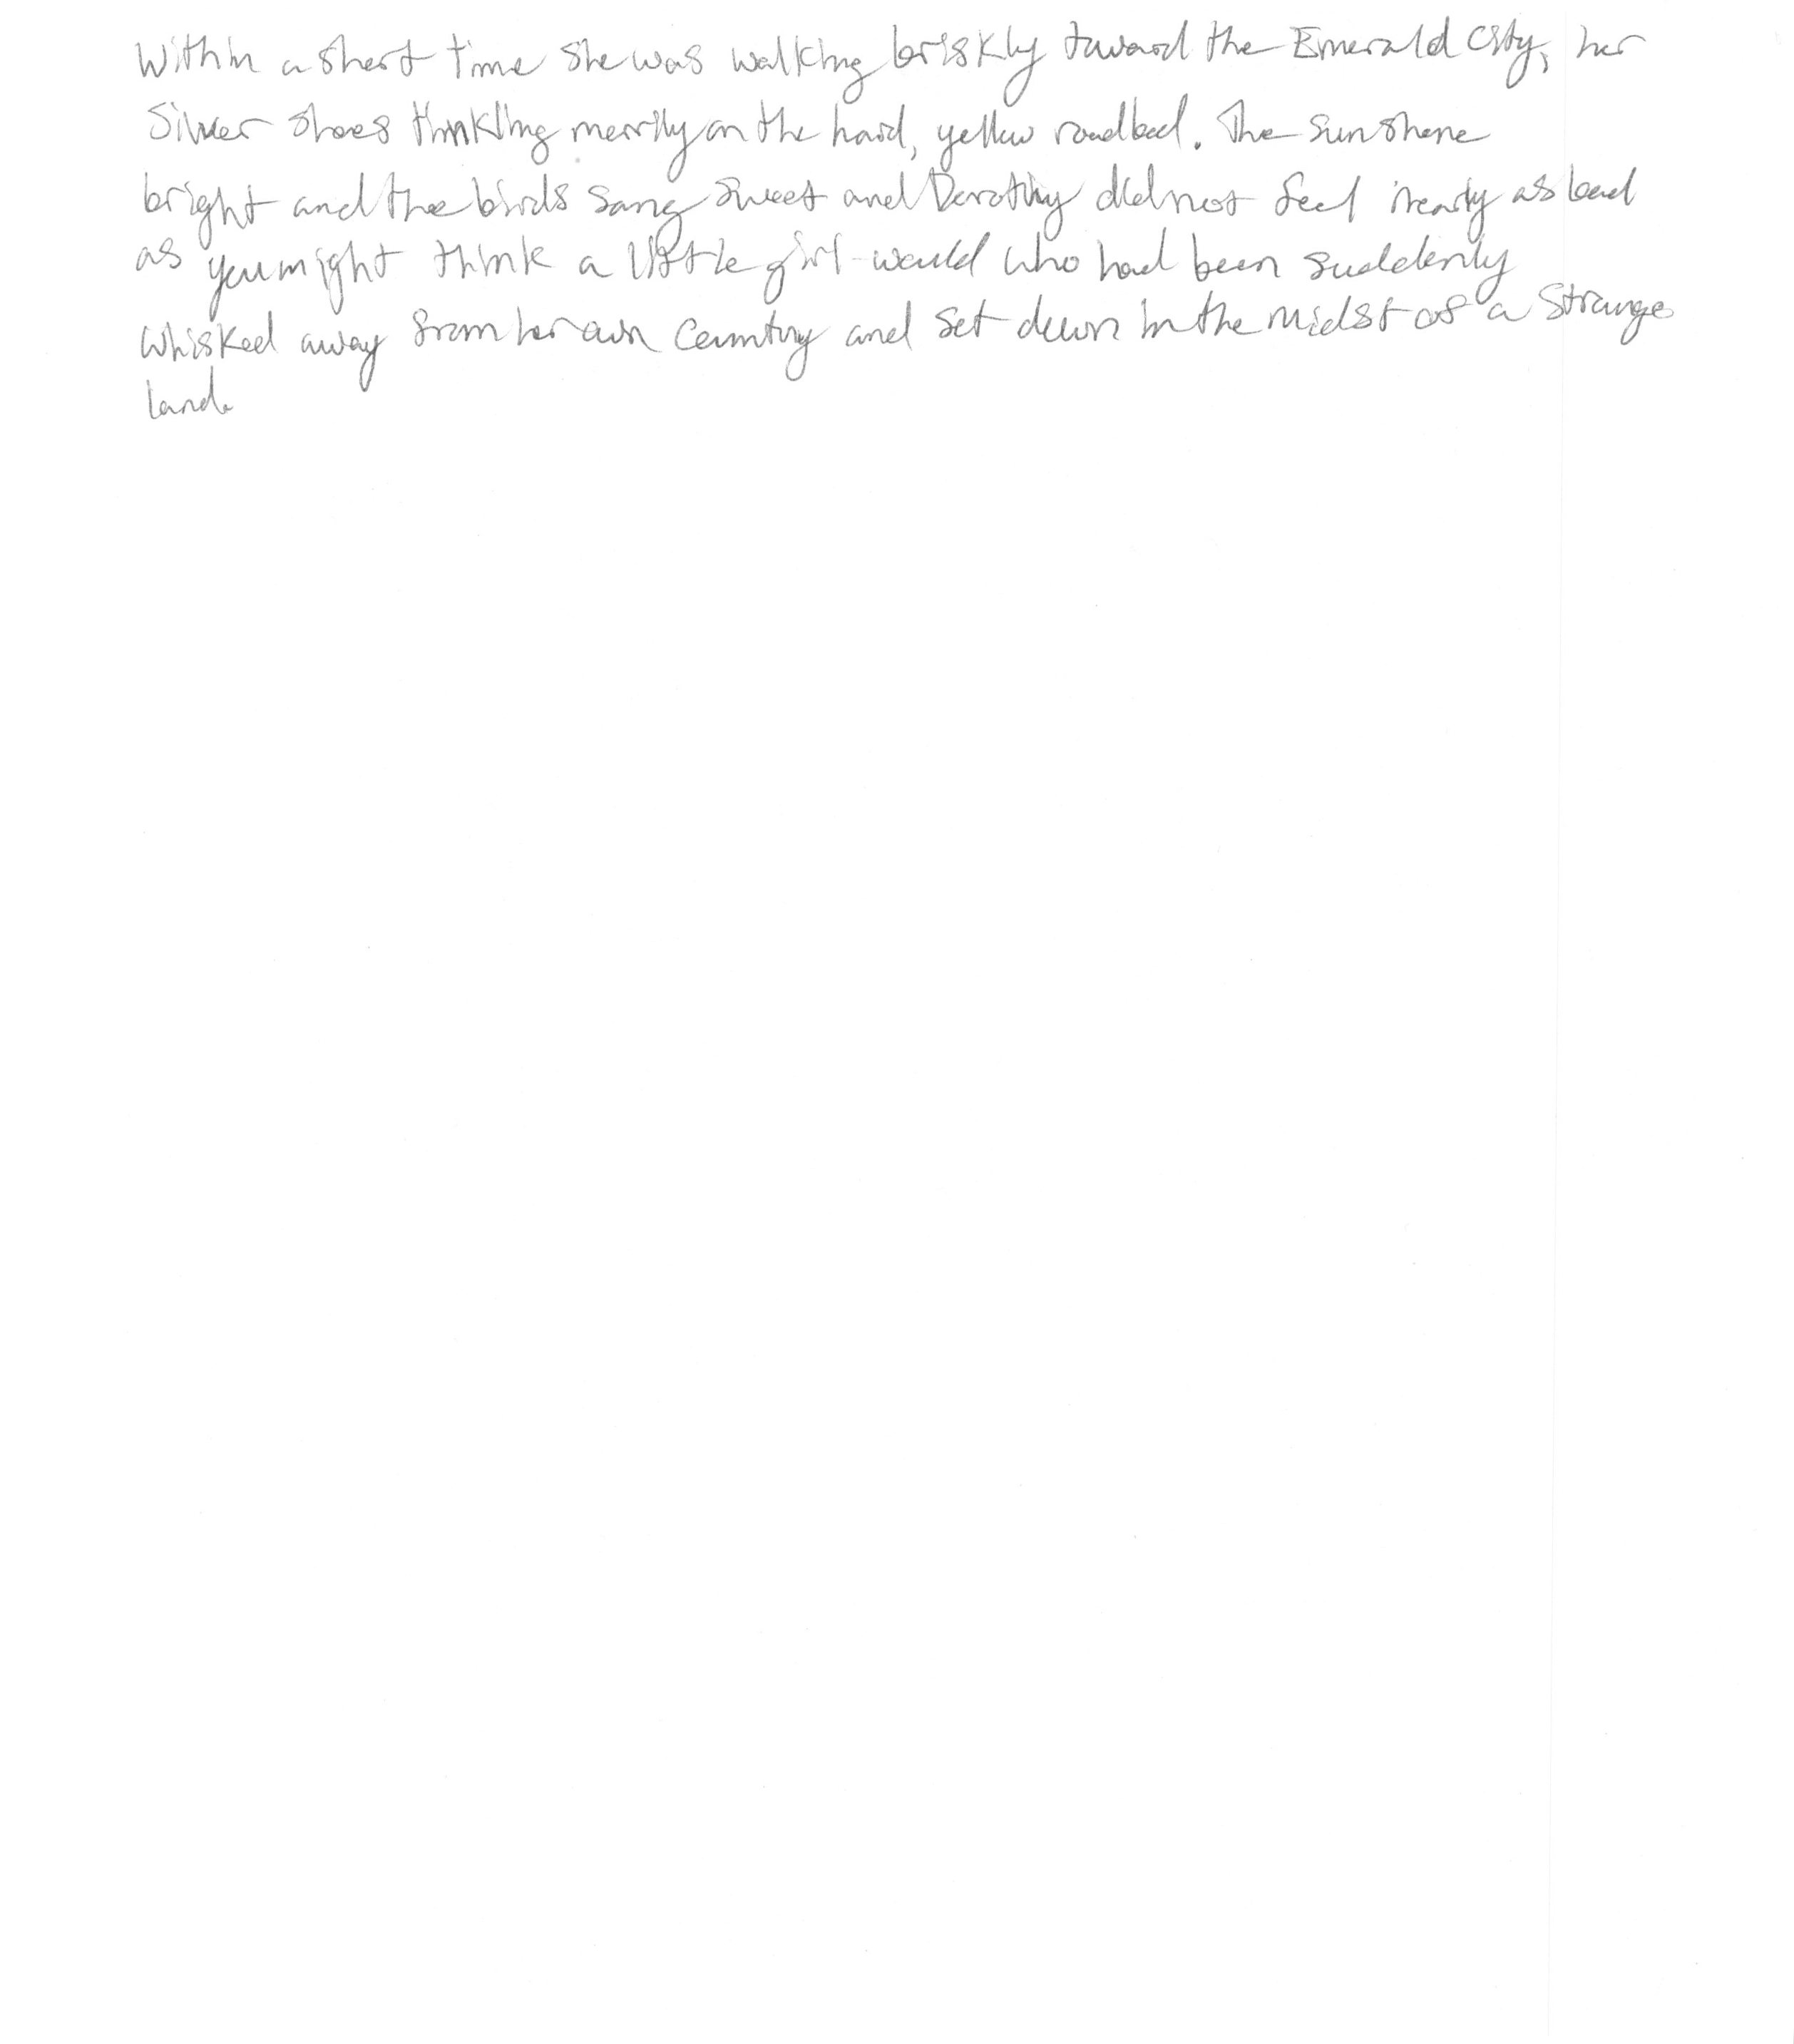 Within a short time she was walking briskly toward the Emerald City, her
Silver Shoes thinkling merrily on the hard, yellow roadbed. The sun shone
bright and the birds sang sweet and Dorothy did not feel nearly as bad
as you might think a little girl would who had been suddenly
whisked away from her own country and set down in the midst of a strange
land.